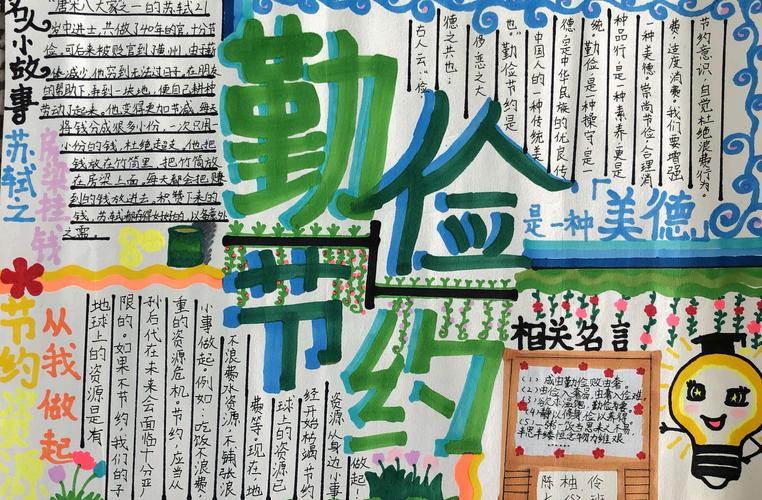 名人小故事
苏轼之
房梁挂钱
唐宋八大家之一的苏轼21
岁中进士,共做了40年的官,十分节
俭,可后来被贬官到黄州,由于薪
俸减少,他穷到无法过日子,在朋友
的帮助下,弄到一块地,便自己耕种
劳动了起来,他变得更加节减,每天
将钱分成很多小份,一次只用
小份的钱,杜绝超支,他把
钱放在竹筒里,把竹筒放
在房梁上面,每天都会把剩
的钱放进去,积攒下来的
钱,苏轼都存得好好的,以备意外
之需。
勤俭
节约
古人云:“俭,
德之共也;
侈恶之大
也。”勤俭节约是
中国人的一种传统美
德,是中华民族的优良传
统。勤俭,是一种操守,是一
种品行,是一种素养,更是
一种美德。崇尚节俭,合理消
费,适度消费。我们要增强
节约意识,自觉杜绝浪费行为。
是一种「美德」
节约资源
从我做起
地球上的资源是有
限的,如果不节约,我们的子
孙后代在未来会面临十分严
重的资源危机。节约,应当从
小事做起。例如:吃饭不浪费,
不浪费水资源,不铺张浪
费等。现在,地
球上的资源已
经开始枯竭,节约
资源,从身边小事
做起!
相关名言
(1)成由勤俭败由奢。
(2)由俭入奢易,由奢入俭难。
(3)欲求温饱,勤俭为要。
(4)静以修身,俭以养德。
(5)一粥一饭当思来之不易,
半丝半缕恒念物力维艰
陈柚伶